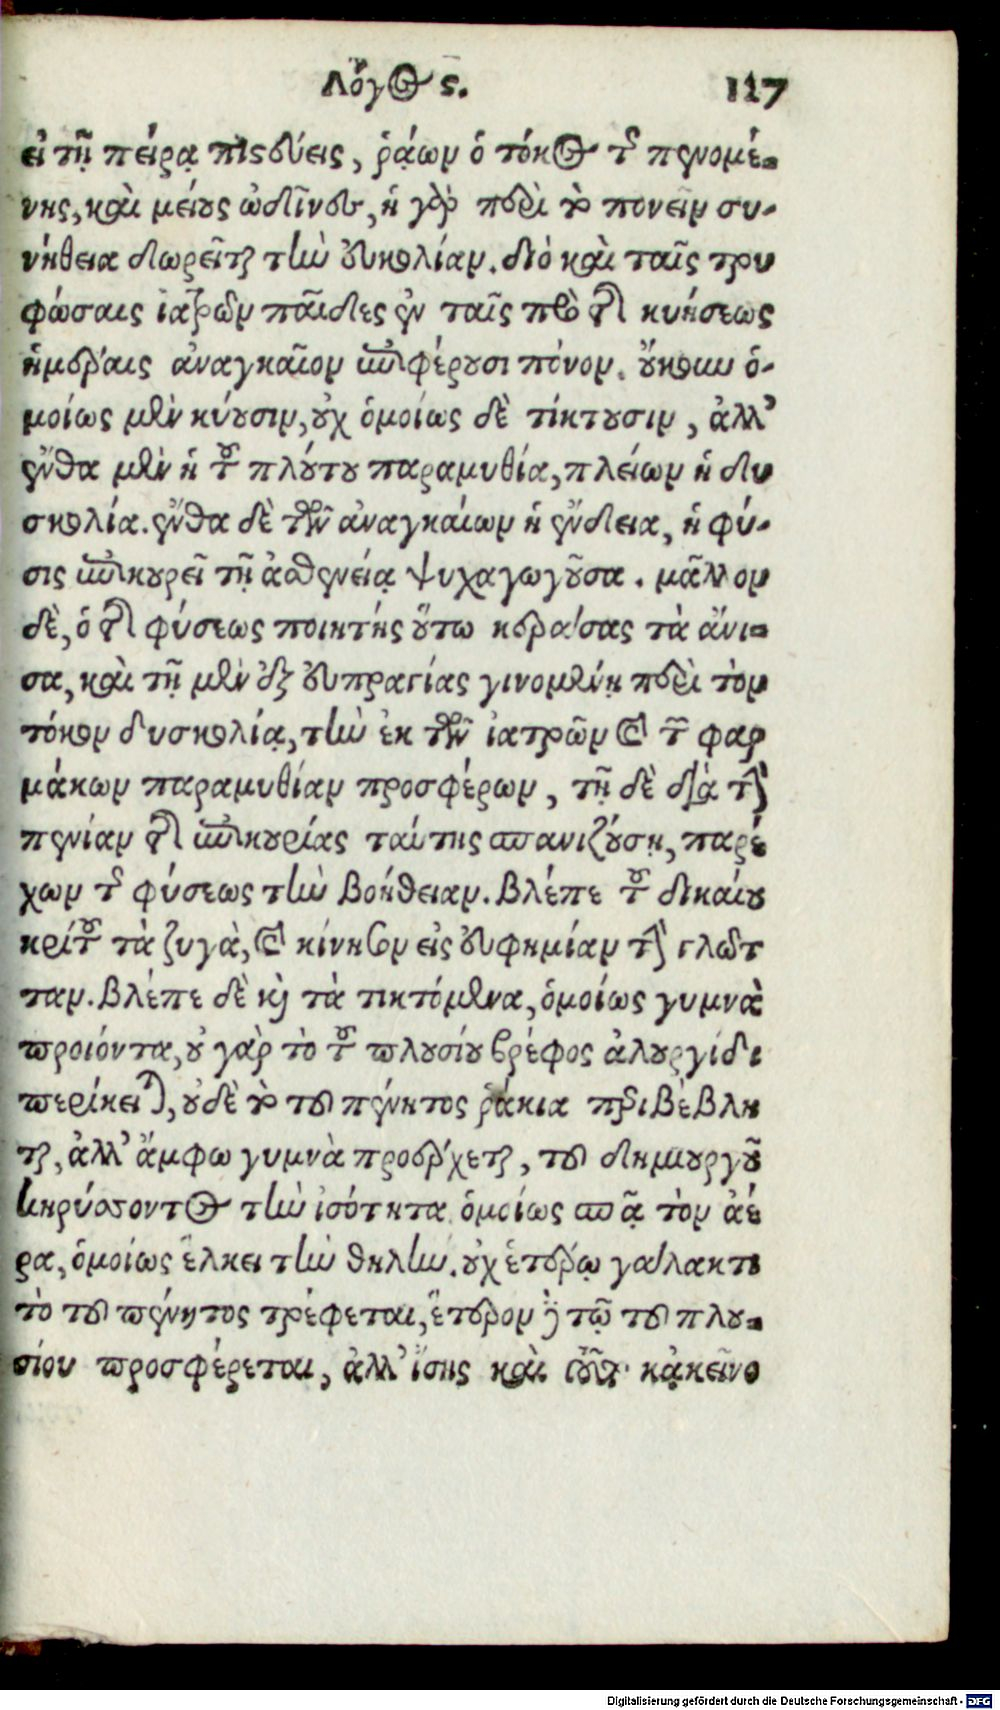 Λόγος ϛ. 117
εἰ τῇ πείρᾳ πιστεύεις, ῥᾴων ὁ τόκος τῆς πενομέ-
νης, καὶ μείους ὠδῖνες, ἡ γὰρ περὶ τὸ πονεῖν συ-
νήθεια δωρεῖται τὴν εὐκολίαν. διὸ καὶ ταῖς τρυ
φώσαις ἰατρῶν παῖδες ἐν ταῖς πρὸ τῆς κυήσεως
ἡμέραις ἀναγκαῖον ἐπιφέρουσι πόνον. οὔκουν ὁ-
μοίως μὲν κύουσιν, οὐχ ὁμοίως δὲ τίκτουσιν, ἀλλ’
ἔνθα μὲν ἡ τοῦ πλούτου παραμυθία, πλείων ἡ δυ
σκολία. ἔνθα δὲ τῶν ἀναγκαίων ἡ ἔνδεια, ἡ φύ-
σις ἐπικουρεῖ τῇ ἀσθενείᾳ ψυχαγωγοῦσα. μᾶλλον
δὲ, ὁ τῆς φύσεως ποιητὴς οὕτω κεράσας τὰ ἄνι-
σα, καὶ τῇ μὲν ἐξ εὐπραγίας γινομένῃ περὶ τὸν
τόκον δυσκολίᾳ, τὴν ἐκ τῶν ἰατρῶν καὶ τῶν φαρ
μάκων παραμυθίαν προσφέρων, τῇ δὲ διὰ τὴν
πενίαν τῆς ἐπικουρίας ταύτης σπανιζούσῃ, παρέ
χων τῆς φύσεως τὴν βοήθειαν. βλέπε τοῦ δικαίου
κριτοῦ τὰ ζυγὰ, καὶ κίνησον εἰς εὐφημίαν τὴν γλῶτ
ταν. βλέπε δὲ καὶ τὰ τικτόμενα, ὁμοίως γυμνὰ
προιόντα, οὐ γὰρ τὸ τοῦ πλουσίου βρέφος ἁλουργίδι
περίκειται, οὐδὲ τὸ τοῦ πένητος ῥάκια περιβέβλη
ται, ἀλλ’ ἄμφω γυμνὰ προσέρχεται, τοῦ δημιουργοῦ
κηρύττοντος τὴν ἰσότητα. ὁμοίως σπᾷ τὸν ἀέ
ρα, ὁμοίως ἕλκει τὴν θηλήν. οὐχ ἑτέρῳ γάλακτι
τὸ τοῦ πένητος τρέφεται, ἕτερον δὲ τῷ τοῦ πλου-
σίου προσφέρεται, ἀλλ’ ἴσης καὶ τοῦτο κἀκεῖνο
Digitalisierung gefördert durch die Deutsche Forschungsgemeinschaft - DFG